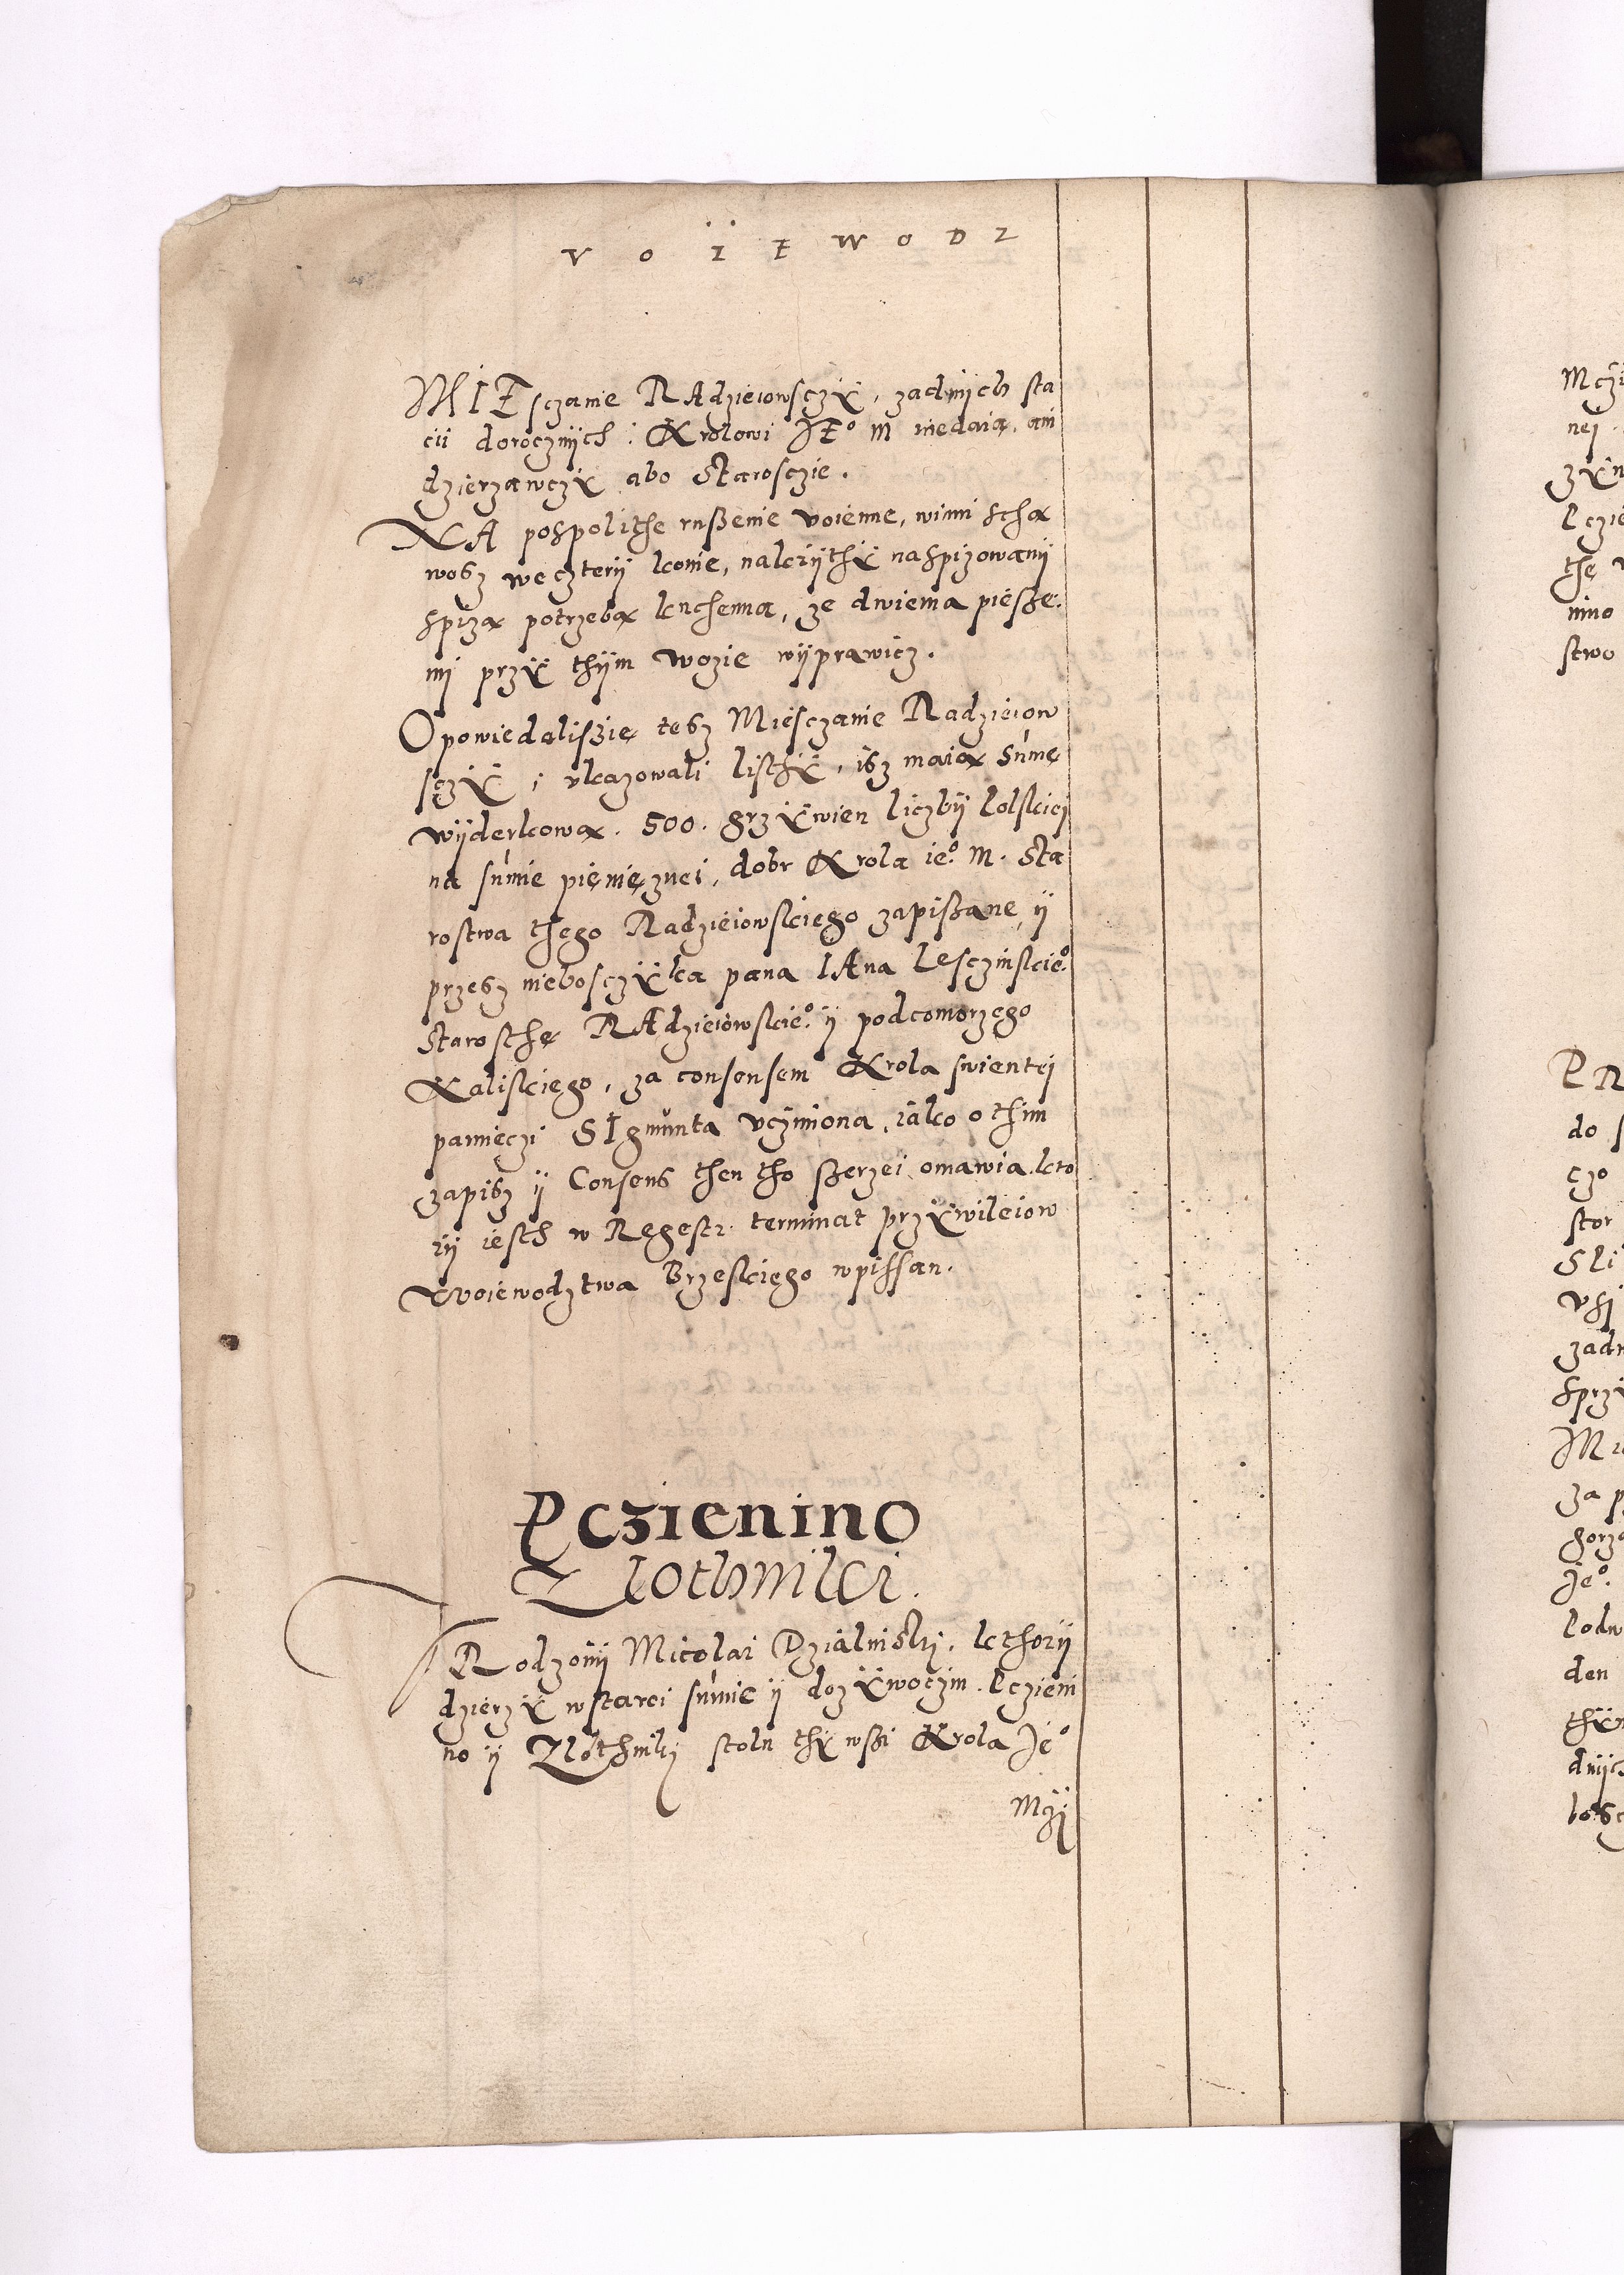 VOIEWODZ
MIEsczanie RAdzieiowsczÿ, zadnÿch sta
cii dorocznÿch : Krolowi JE° M niedaią, ani
dzierzawczÿ abo Starosczie.
NA pospolithe rußenie voienne, winni scha
wosz we czterÿ konie, należÿthÿ naspizowanÿ
spizą potrzebą kuchenną, ze dwiema pießę:
mi przÿ thÿm wozie wÿprawicz.
Opowiedaliszię tesz Miesczanie Radzieiow
sczÿ ; ukazowali listhÿ, isz maią Sumę
wÿderkową. 500. grzÿwien liczbÿ Polskiei
na sumie pienięznei, dobr Krola ie° M. Sta
rostwa thego Radzieiowskiego zapißane, ÿ
przesz niebosczÿka pana IAna Lesczinskie°
Starosthę RAdzieiowskie° ÿ podcomorzego
Kaliskiego, za consensem Krola swientei
pamieczi SIgmunta vcziniona, iako o thim
zapisz ÿ Consens then tho ßerzei omawia. kto
rÿ iesth w Regestr. terminat przÿwileiow
Woiewodztwa Brzeskiego wpissan.
Pczienino
Zlothniki.
VRodzonÿ Micolai Dzialniski, kthorÿ
dzierzÿ w starei sumie ÿ dozÿwoczim. Pczieni
no ÿ Zlothniki stoln thÿ wßi Krola Je°
Mczi